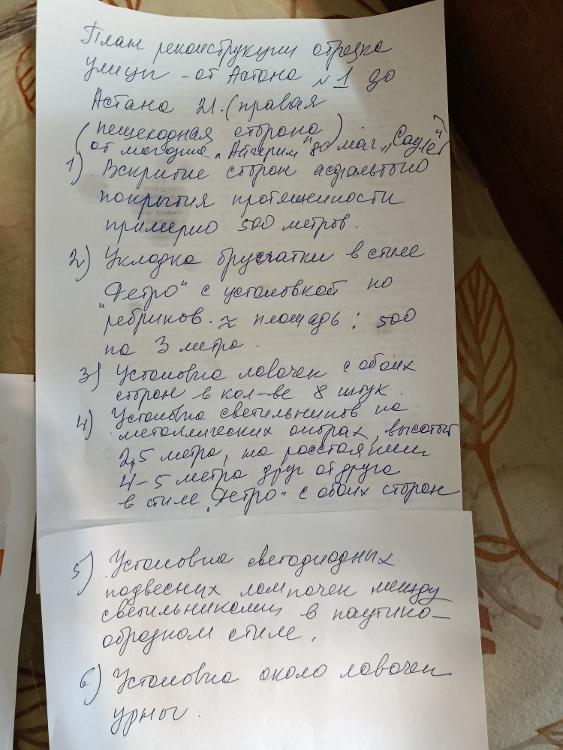 План реконструкции отрезка
улицы - от Астана №1 до
Астана 21. (правая
(пешеходная сторона)
от магазина „Айгерим" до маг. „Сауле"
1) Вскрытие сторон асфальтно
покрытия протяженности
примерно 500 метров.
2) Укладка брусчатки в стиле
„Ретро" с установкой по
ребриков. ≈ площадь: 500
на 3 метра.
3) Установка лавочек с обоих
сторон в кол-ве 8 штук.
4) Установка светильников на
металлических опорах, высотой
2,5 метра, на расстоянии
4-5 метра друг от друга
в стиле „Ретро" с обоих сторон
5) Установка светодиодных
подвесных лампочек между
светильниками в паутино-
образном стиле.
6) Установка около лавочек
урны.